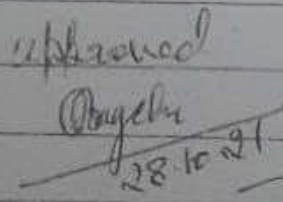 approved
28.10.21